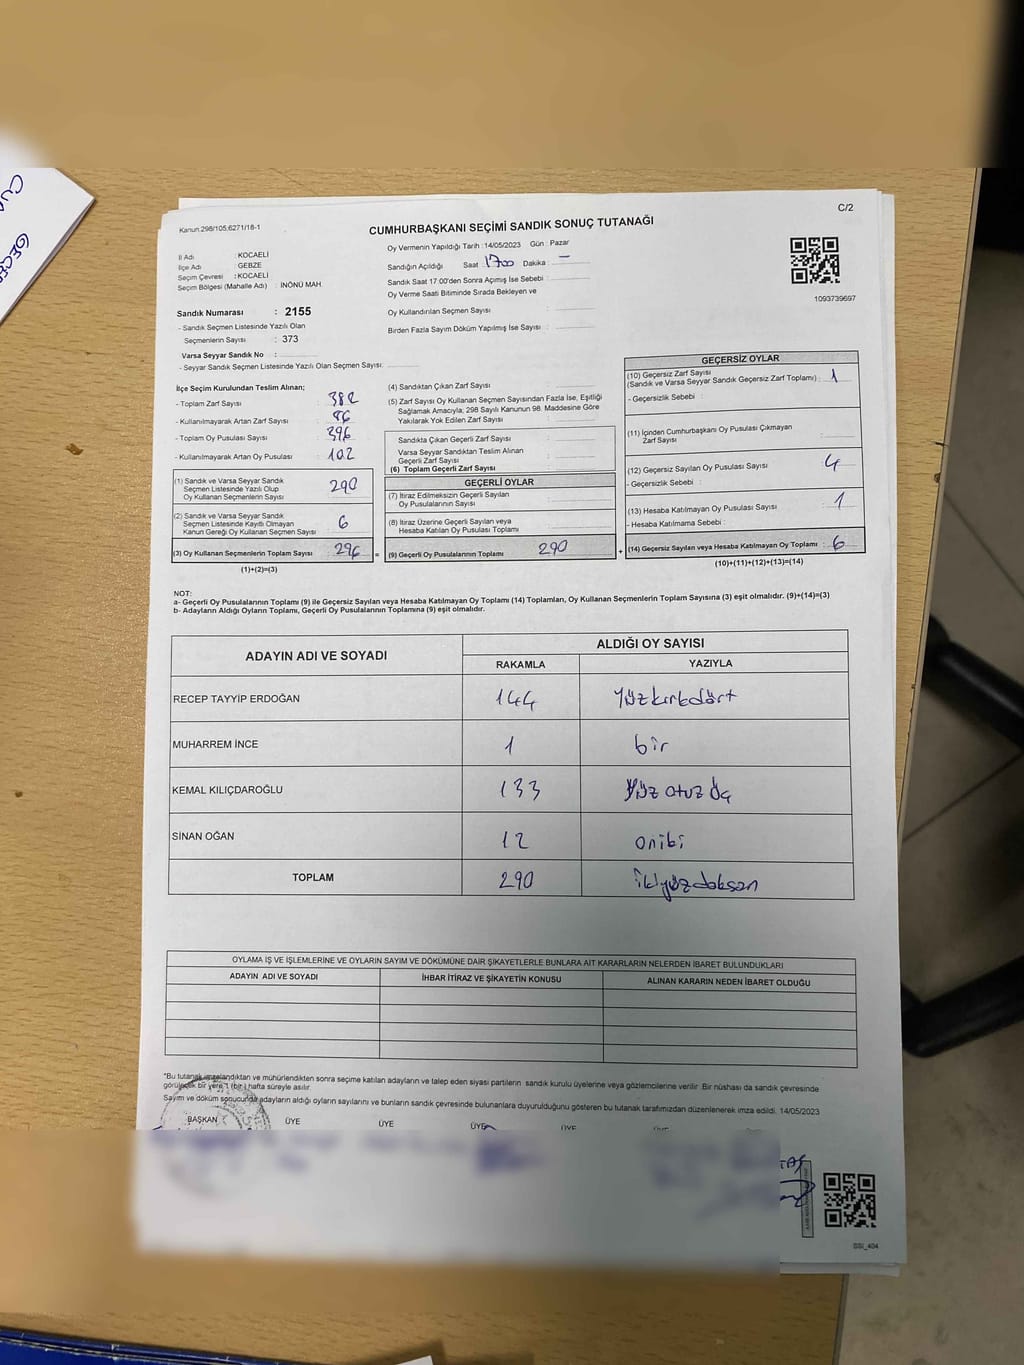 C/2
Kanun.298/105,6271/18-1
CUMHURBAŞKANI SEÇİMİ SANDIK SONUÇ TUTANAĞI
İl Adı : KOCAELİ
İlçe Adı : GEBZE
Seçim Çevresi : KOCAELİ
Seçim Bölgesi (Mahalle Adı) : İNÖNÜ MAH.
Oy Vermenin Yapıldığı Tarih :14/05/2023 Gün : Pazar
Sandığın Açıldığı Saat 1700 Dakika : –
Sandık Saat 17.00'den Sonra Açımış İse Sebebi :
Oy Verme Saati Bitiminde Sırada Bekleyen ve
Oy Kullandırılan Seçmen Sayısı :
Birden Fazla Sayım Döküm Yapılmış İse Sayısı :
1093739697
Sandık Numarası : 2155
- Sandık Seçmen Listesinde Yazılı Olan
Seçmenlerin Sayısı : 373
Varsa Seyyar Sandık No :
- Seyyar Sandık Seçmen Listesinde Yazılı Olan Seçmen Sayısı:
İlçe Seçim Kurulundan Teslim Alınan;
- Toplam Zarf Sayısı : 382
- Kullanılmayarak Artan Zarf Sayısı : 86
- Toplam Oy Pusulası Sayısı : 396
- Kullanılmayarak Artan Oy Pusulası : 102
(1) Sandık ve Varsa Seyyar Sandık
Seçmen Listesinde Yazılı Olup
Oy Kullanan Seçmenlerin Sayısı 290
(2) Sandık ve Varsa Seyyar Sandık
Seçmen Listesinde Kayıtlı Olmayan
Kanun Gereği Oy Kullanan Seçmen Sayısı 6
(3) Oy Kullanan Seçmenlerin Toplam Sayısı : 296 =
(1)+(2)=(3)
(4) Sandıktan Çıkan Zarf Sayısı :
(5) Zarf Sayısı Oy Kullanan Seçmen Sayısından Fazla İse, Eşitliği
Sağlamak Amacıyla; 298 Sayılı Kanunun 98. Maddesine Göre
Yakılarak Yok Edilen Zarf Sayısı :
Sandıkta Çıkan Geçerli Zarf Sayısı :
Varsa Seyyar Sandıktan Teslim Alınan
Geçerli Zarf Sayısı :
(6) Toplam Geçerli Zarf Sayısı :
GEÇERLİ OYLAR
(7) İtiraz Edilmeksizin Geçerli Sayılan
Oy Pusulalarının Sayısı :
(8) İtiraz Üzerine Geçerli Sayılan veya
Hesaba Katılan Oy Pusulası Toplamı :
(9) Geçerli Oy Pusulalarının Toplamı : 290 +
GEÇERSİZ OYLAR
(10) Geçersiz Zarf Sayısı
(Sandık ve Varsa Seyyar Sandık Geçersiz Zarf Toplamı) : 1
- Geçersizlik Sebebi :
(11) İçinden Cumhurbaşkanı Oy Pusulası Çıkmayan
Zarf Sayısı :
(12) Geçersiz Sayılan Oy Pusulası Sayısı : 4
- Geçersizlik Sebebi :
(13) Hesaba Katılmayan Oy Pusulası Sayısı : 1
- Hesaba Katılmama Sebebi :
(14) Geçersiz Sayılan veya Hesaba Katılmayan Oy Toplamı : 6
(10)+(11)+(12)+(13)=(14)
NOT:
a- Geçerli Oy Pusulalarının Toplamı (9) ile Geçersiz Sayılan veya Hesaba Katılmayan Oy Toplamı (14) Toplamları, Oy Kullanan Seçmenlerin Toplam Sayısına (3) eşit olmalıdır. (9)+(14)=(3)
b- Adayların Aldığı Oyların Toplamı, Geçerli Oy Pusulalarının Toplamına (9) eşit olmalıdır.
ADAYIN ADI VE SOYADI ALDIĞI OY SAYISI
RAKAMLA YAZIYLA
RECEP TAYYİP ERDOĞAN 144 Yüzkırkdört
MUHARREM İNCE 1 bir
KEMAL KILIÇDAROĞLU 133 Yüz otuz üç
SİNAN OĞAN 12 oniki
TOPLAM 290 ikiyüzdoksan
OYLAMA İŞ VE İŞLEMLERİNE VE OYLARIN SAYIM VE DÖKÜMÜNE DAİR ŞİKAYETLERLE BUNLARA AİT KARARLARIN NELERDEN İBARET BULUNDUKLARI
ADAYIN ADI VE SOYADI İHBAR İTİRAZ VE ŞİKAYETİN KONUSU ALINAN KARARIN NEDEN İBARET OLDUĞU
*Bu tutanak imzalandıktan ve mühürlendikten sonra seçime katılan adayların ve talep eden siyasi partilerin sandık kurulu üyelerine veya gözlemcilerine verilir. Bir nüshası da sandık çevresinde
görülecek bir yere 1 (bir) hafta süreyle asılır.
Sayım ve döküm sonucunda adayların aldığı oyların sayılarını ve bunların sandık çevresinde bulunanlara duyurulduğunu gösteren bu tutanak tarafımızdan düzenlenerek imza edildi. 14/05/2023
BAŞKAN ÜYE ÜYE ÜYE ÜYE
SSİ_404